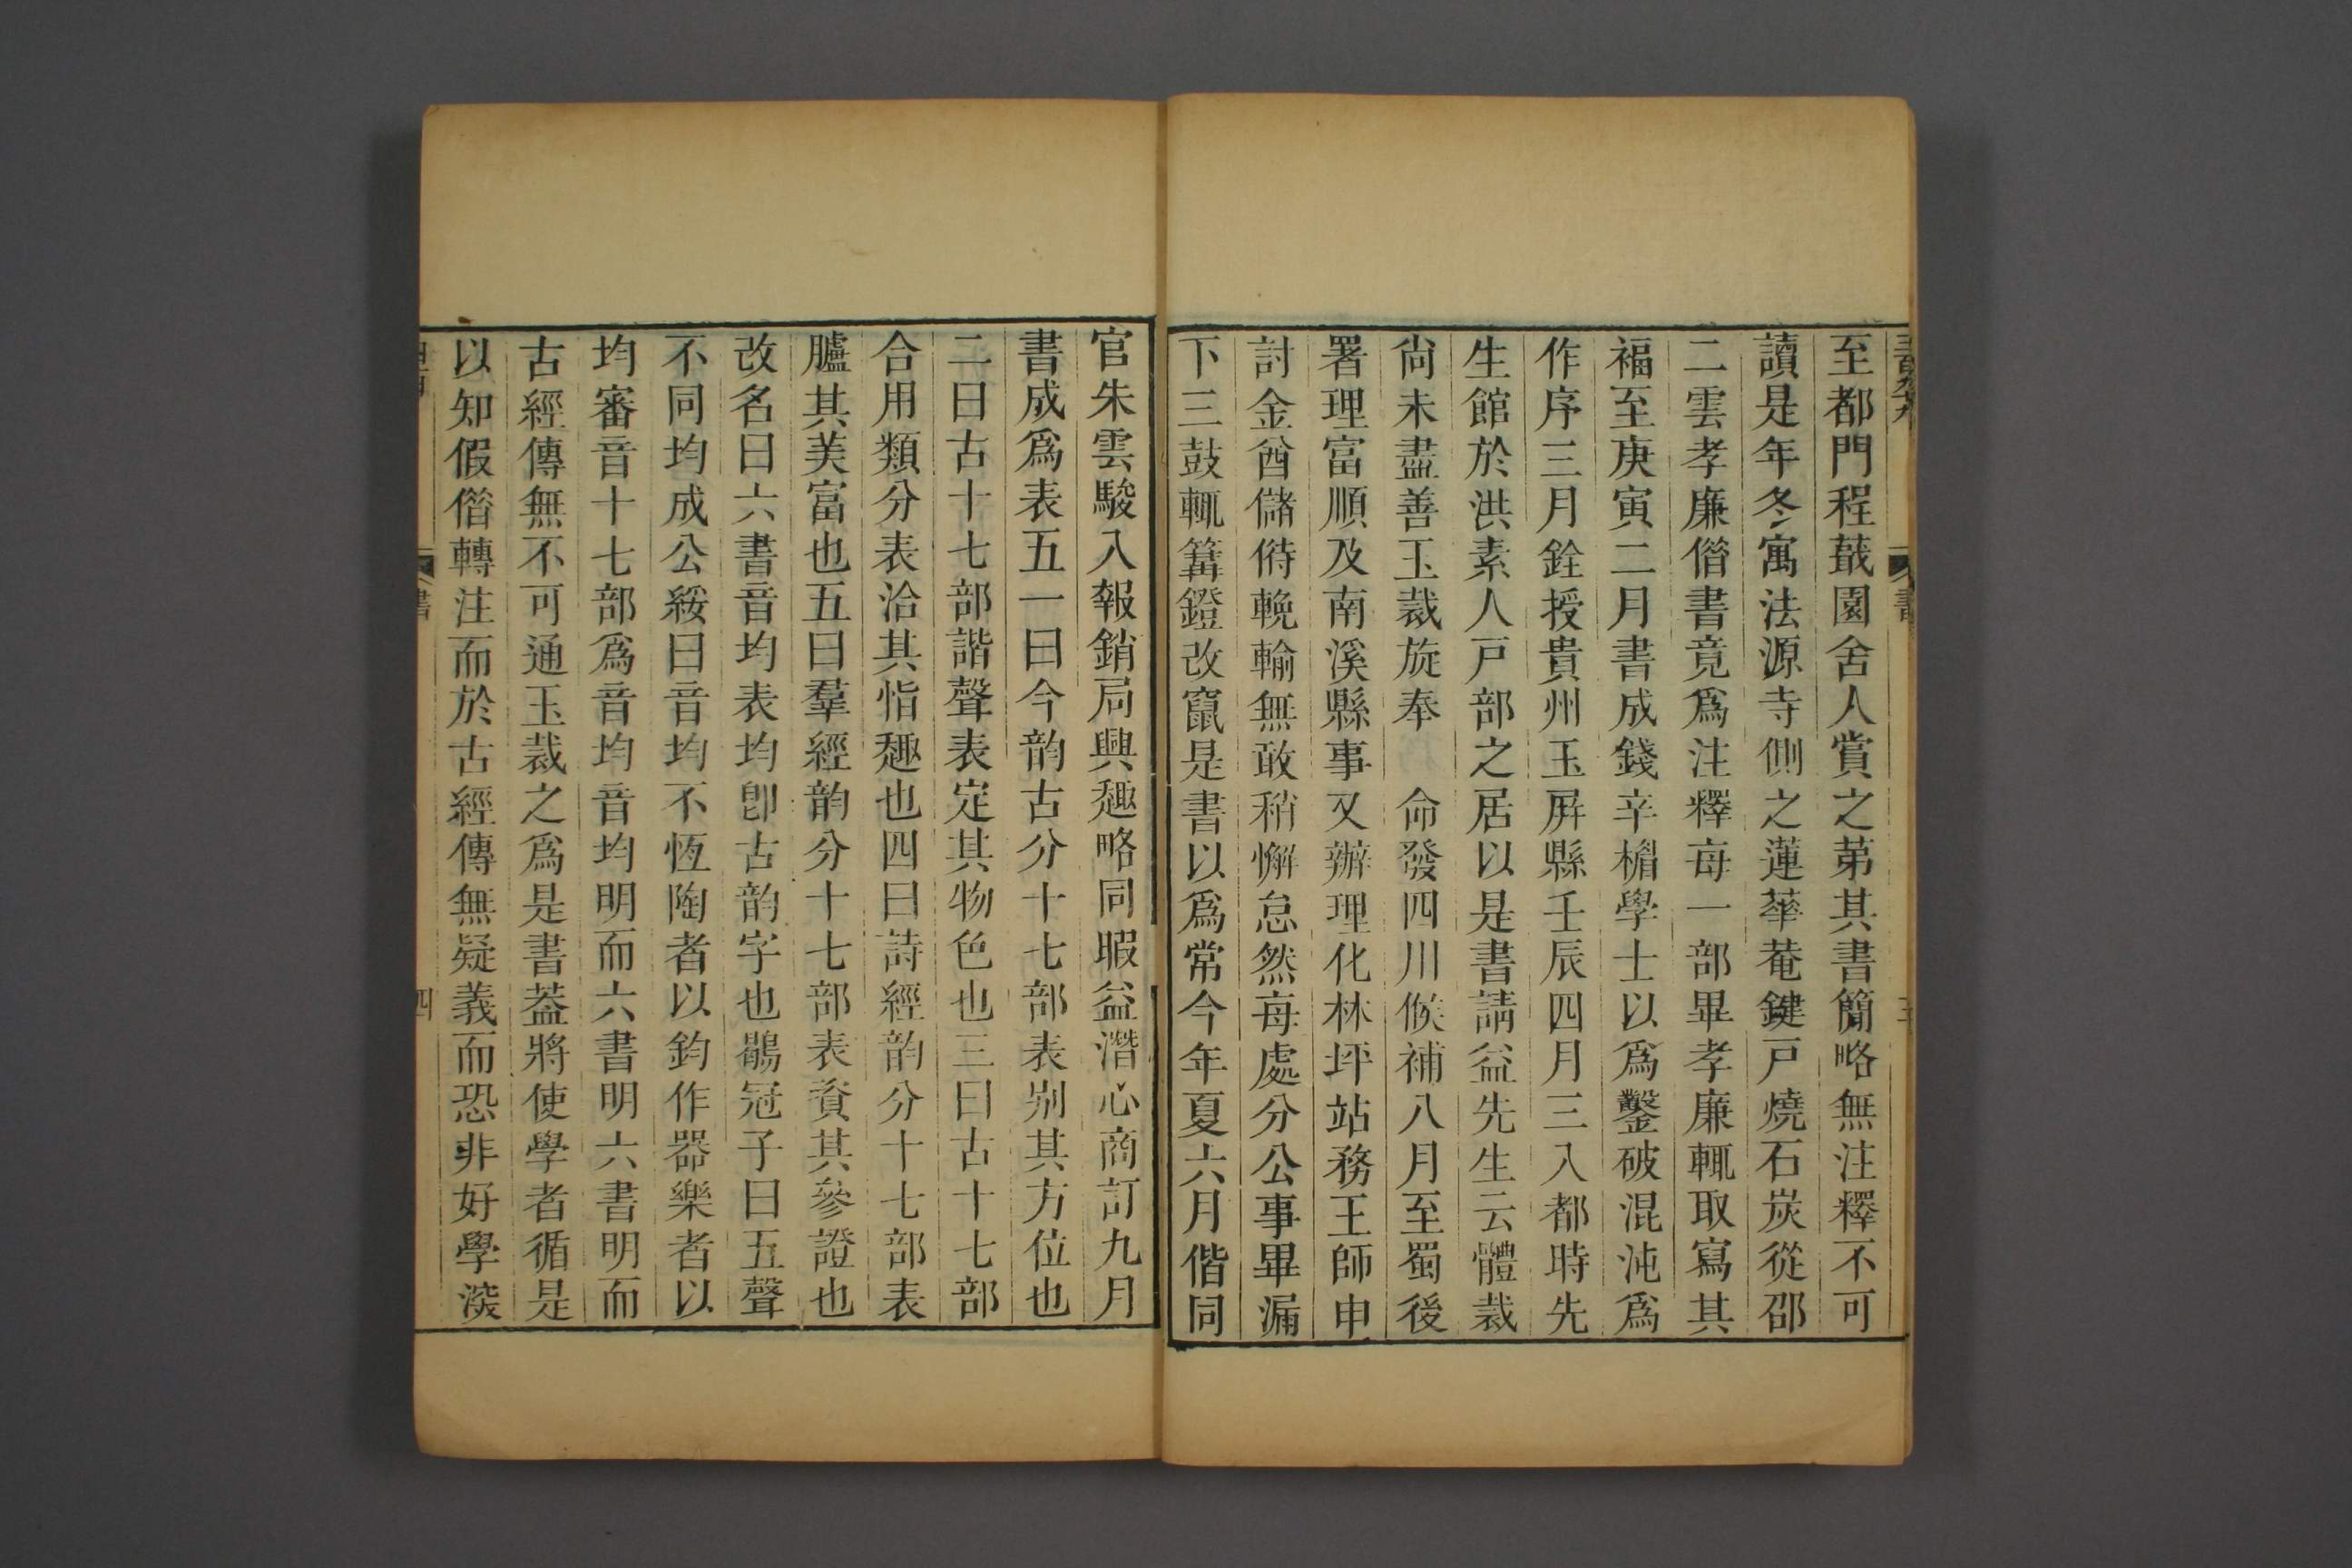 至都門程蕺園舍人賞之苐其書簡略無注釋不可
讀是年冬寓法源寺側之蓮華菴鍵戶燒石炭從邵
二雲孝廉偺書竟爲注釋每一部畢孝廉輒取寫其
福至庚寅二月書成錢辛楣學士以爲鑿破混沌爲
作序三月銓授貴州玉屏縣壬辰四月三入都時先
生館於洪素人戸部之居以是書請益先生云體裁
尙未盡善玉裁旋奉 命發四川候補八月至蜀後
署理富順及南溪縣事又辦理化林坪站務王師申
討金酋儲偫輓輸無敢稍懈怠然每處分公事畢漏
下三鼓輒篝鐙改竄是書以爲常今年夏六月偕同
官朱雲駿入報銷局興趣略同暇益潛心商訂九月
書成爲表五一曰今韵古分十七部表别其方位也
二曰古十七部諧聲表定其物色也三曰古十七部
合用類分表洽其恉趣也四曰詩經韵分十七部表
臚其美富也五曰羣經韵分十七部表資其參證也
改名曰六書音均表均卽古韵字也鶡冠子曰五聲
不同均成公綏曰音均不恆陶者以鈞作器樂者以
均審音十七部爲音均音均明而六書明六書明而
古經傳無不可通玉裁之爲是書葢將使學者循是
以知假偺轉注而於古經傳無疑義而恐非好學㴱
書
四